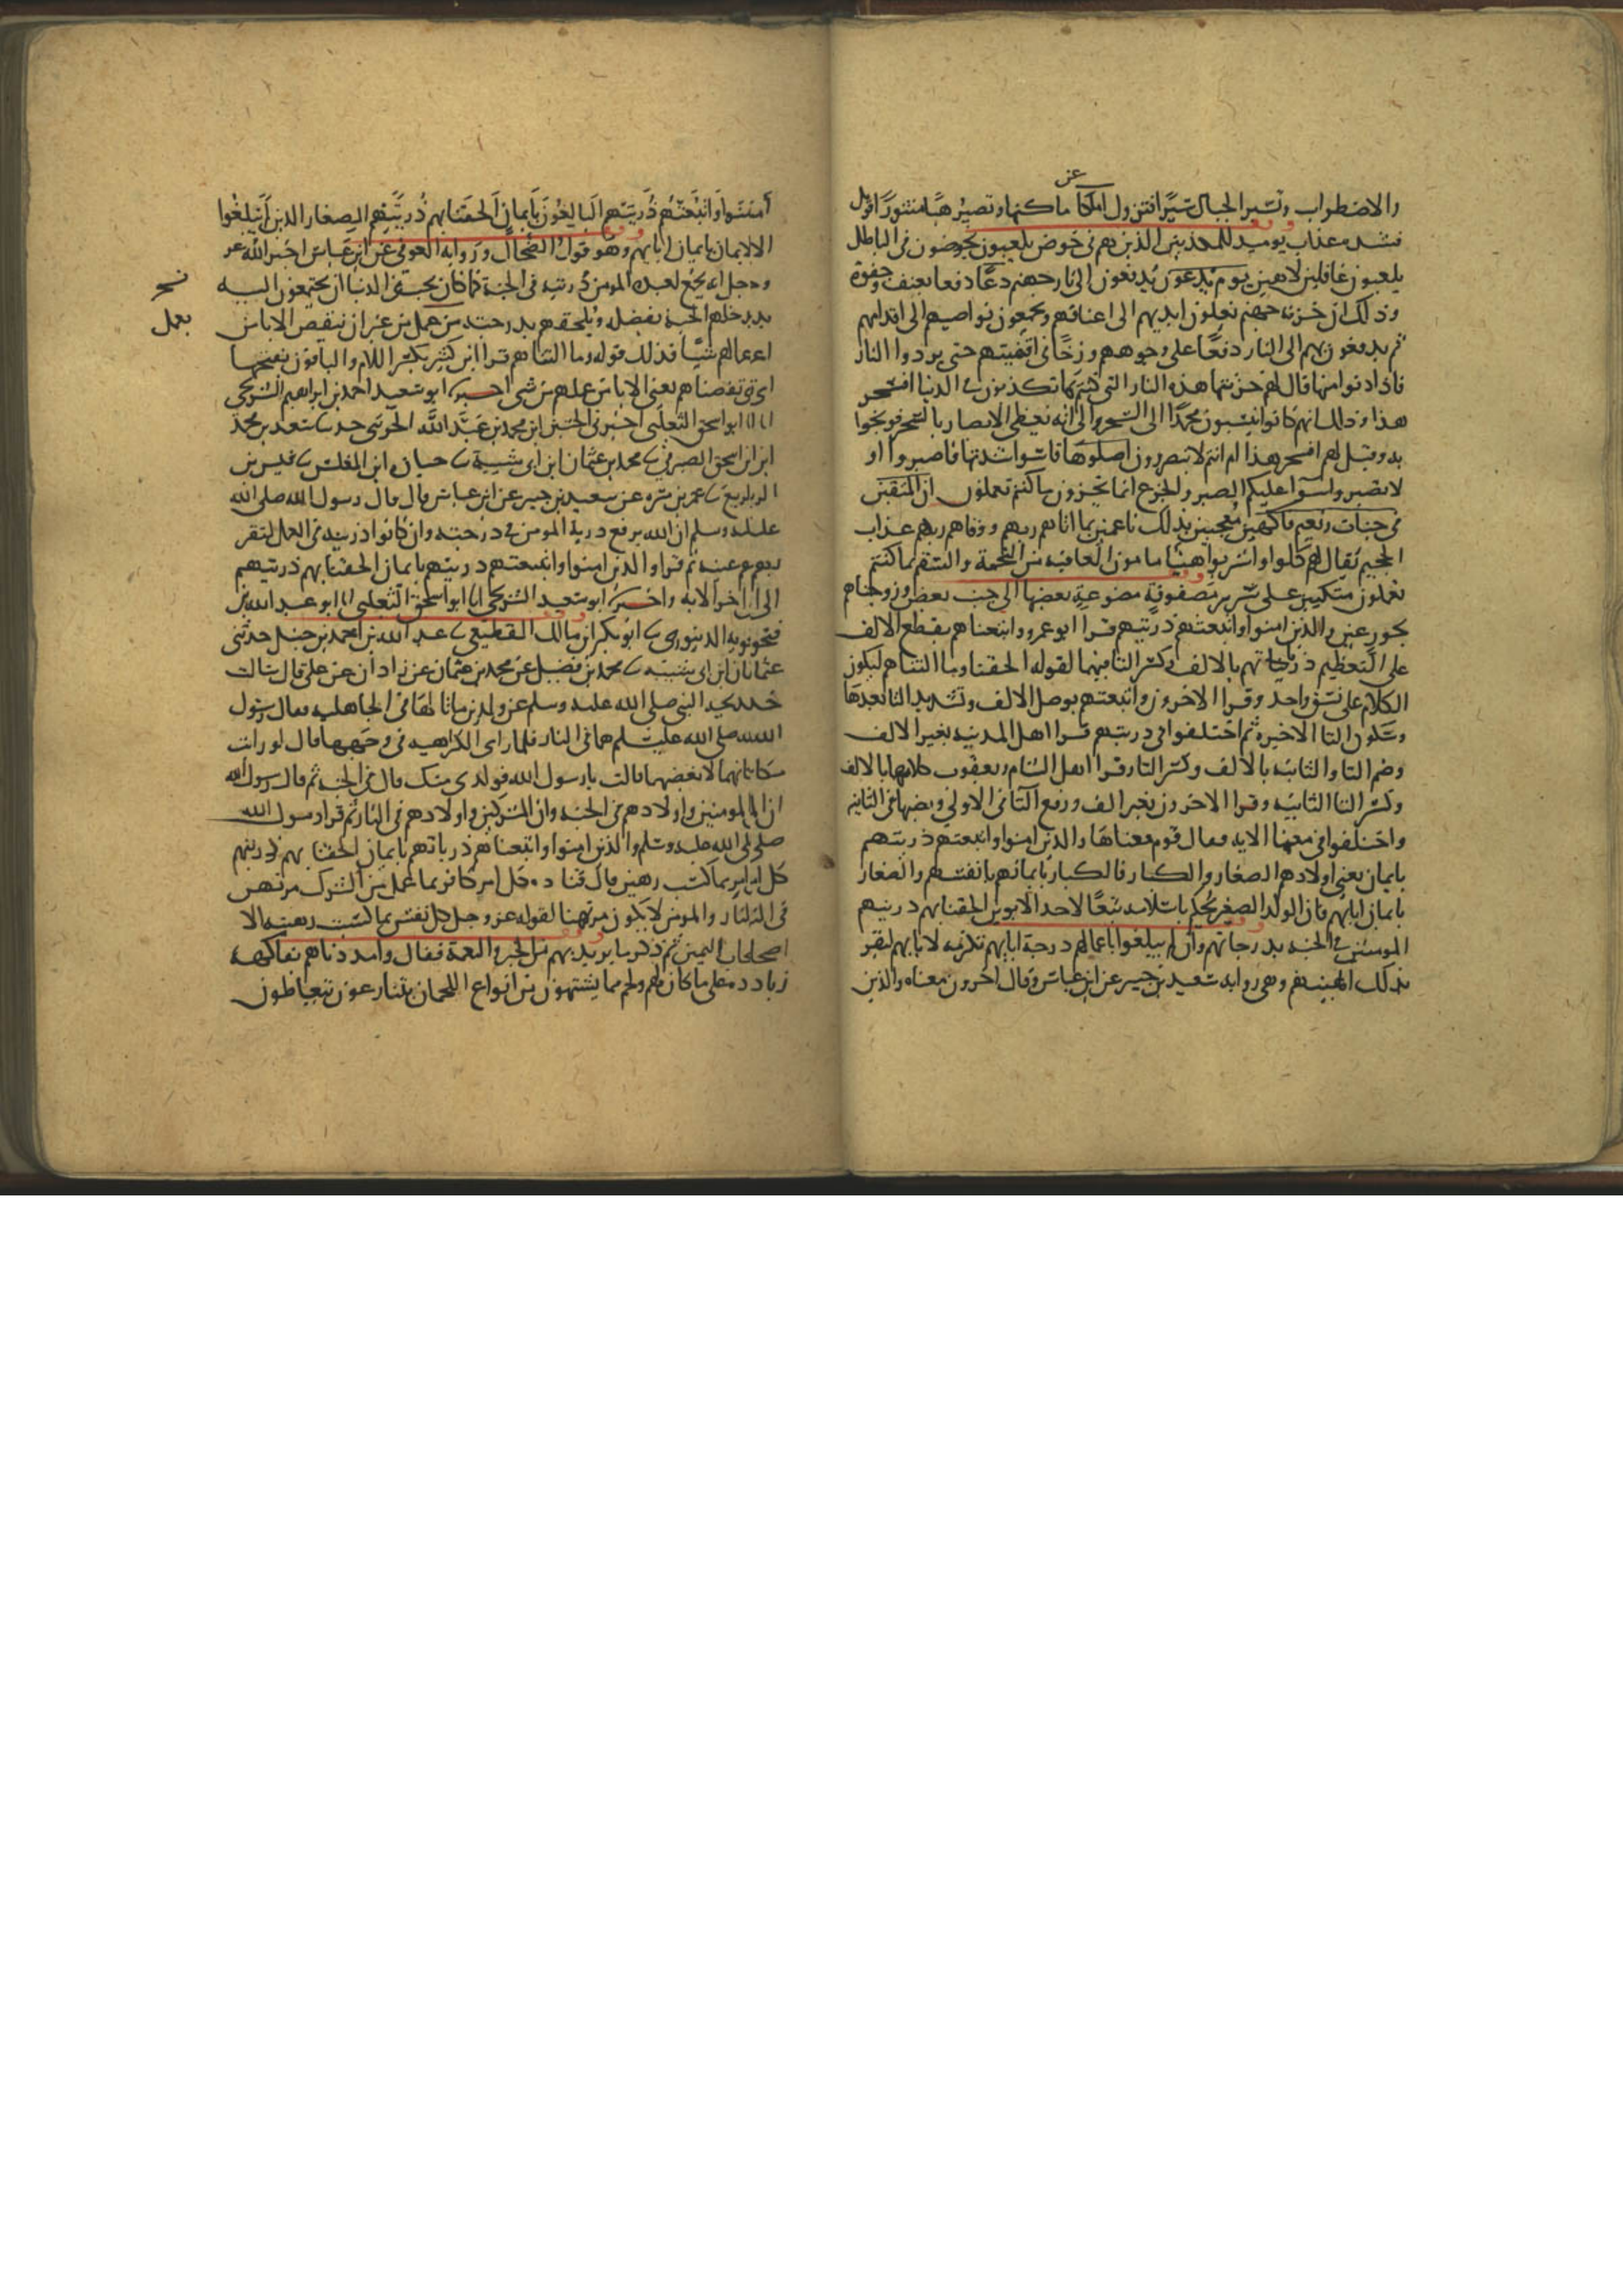 عن
والاضطراب وتسير الجبال سيرا فتزول اماكنا ماكنها وتصير هبا منثورا فويل
فشده عذاب يوميد للمكذبين الذين هم في خوض يلعبون يخوضون في الباطل
يلعبون غافلين لاهين يوم يدعون يدفعون الى نار جهنم دعا دفعا بعنف وجفوة
وذلك ان خزنة جهنم يغلون ايديهم الى اعناقهم ويجمعون نواصيهم الى اقدامهم
ثم يدفعون بهم الى النار دفعا على وجوههم وزخا في اقفيتهم حتى يردوا النار
فاذا دنوا منها قال لهم خزنتها هذه النار التي كنتم بها تكذبون في الدنيا افسحر
هذا وذلك انهم كانوا ينسبون محمدا الى السحر والى انه يغطي الابصار بالسحر فوبخوا
به وقيل لهم افسحر هذا ام انتم لا تبصرون اصلوها قاسوا شدتها فاصبروا او
لا تصبروا سوا عليكم الصبر والجزع انما تجزون ما كنتم تعملون ان المتقين
في جنات ونعيم فاكهين معجبين بذلك ناعمين بما اتاهم ربهم ووقاهم ربهم عذاب
الجحيم يقال لهم كلوا واشربوا هنيا مامون العاقبة من التخمة والسقم بما كنتم
تعملون متكيين على سرر مصفوفة موضوعة بعضها الى جنب بعض وزوجناهم
بحور عين والذين امنوا واتبعتهم ذريتهم قرا ابو عمرو واتبعناهم بقطع الالف
على التعظيم ذرياتهم بالالف وكسر التا فيهما لقوله الحقنا وما التناهم ليكون
الكلام على نسق واحد وقرا الاخرون واتبعتهم بوصل الالف وتشديد التا بعدها
وسكون التا الاخيرة ثم اختلفوا في ذريتهم قرا اهل المدينه بغير الالف
وضم التا والثانيه بالالف وكسر التا وقرا اهل الشام ويعقوب كلاهما بالالف
وكسر التا الثانيه وقرا الاخرون بغير الف ورفع التا في الاولى ونصبها في الثانيه
واختلفوا في معنى الايه فقال قوم معناها والذين امنوا واتبعتهم ذريتهم
بايمان يعني اولادهم الصغار والكبار فالكبار بايمانهم بانفسهم والصغار
بايمان ابايهم فان الولد الصغير يحكم باسلامه تبعا لاحد الابوين الحقنا بهم ذريتهم
المومنين في الجنه بدرجاتهم وان لم يبلغوا باعمالهم درجة ابايهم تكرمه لابايهم لتقر
بذلك اعينهم وهي روايه سعيد بن جبير عن ابن عباس وقال اخرون معناه والذين
امنوا واتبعتهم ذريتهم البالغون بايمان الحقنا بهم ذريتهم الصغار الذين لم يبلغوا
الايمان بايمان ابايهم وهو قول الضحاك وروايه العوفي عن ابن عباس اخبر الله عز
وجل انه يجمع لعبده المومن ذريته في الجنة كما كان يحب في الدنيا ان يجتمعوا اليه
نسخ
يدخلهم الجنه بفضله ويلحقهم بدرجته من عمل من غير ان ينقص الابا من
بعمل
اعمالهم شيا فذلك قوله وما التناهم قرا ابن كثير بكسر اللام والباقون بفتحها
اي نقصناهم يعني الابا من عملهم من شي اخبرنا ابو سعيد احمد بن ابراهيم الشريحي
انا ابو اسحق الثعلبي اخبرني الحسين ابن محمد بن عبد الله الحديثي حدثنا سعد بن محمد
ابن ابن اسحق الصيرفي نا محمد بن عثمان ابن ابي شيبة نا جباره ابن المغلس نا قيس بن
الربيع نا عمر بن مره عن سعيد بن جبير عن ابن عباس قال قال رسول الله صلى الله
عليه وسلم ان الله يرفع ذرية المومن في درجته وان كانوا دونه في العمل لتقر
بهم عينه ثم قرا والذين امنوا واتبعتهم ذريتهم بايمان الحقنا بهم ذريتهم
الى اخر الايه واخبرنا ابو سعيد الشريحي انا ابو اسحق الثعلبي انا ابو عبد الله بن
فتحويه الدينوري نا ابو بكر ابن مالك القطيعي نا عبد الله بن احمد بن حنبل حدثني
عثمان ابن ابي شيبه نا محمد بن فضيل عن محمد بن عثمان عن زاذان عن علي قال سالت
خديجه النبي صلى الله عليه وسلم عن ولدين ماتا لها في الجاهليه فقال رسول
الله صلى الله عليه وسلم هما في النار فلما راى الكراهيه في وجهها قال لو رايت
مكانهما لابغضتهما قالت يا رسول الله فولدي منك قال في الجنه ثم قال رسول الله
ان المومنين واولادهم في الجنه وان المشركين واولادهم في النار ثم قرا رسول الله
صلى الله عليه وسلم والذين امنوا واتبعناهم ذرياتهم بايمان الحقنا بهم ذريتهم
كل امري بما كسب رهين قال كل امر كافر بما عمل من الشرك مرتهن
في النار والمومن لا يكون مرتهنا لقوله عز وجل كل نفس بما كسبت رهينه الا
اصحاب اليمين ثم ذكر ما يزيدهم من الخير والنعمة فقال وامددناهم بفاكهه
زيادة على ما كان لهم ولحم مما يشتهون من انواع اللحمان يتنازعون يتعاطون